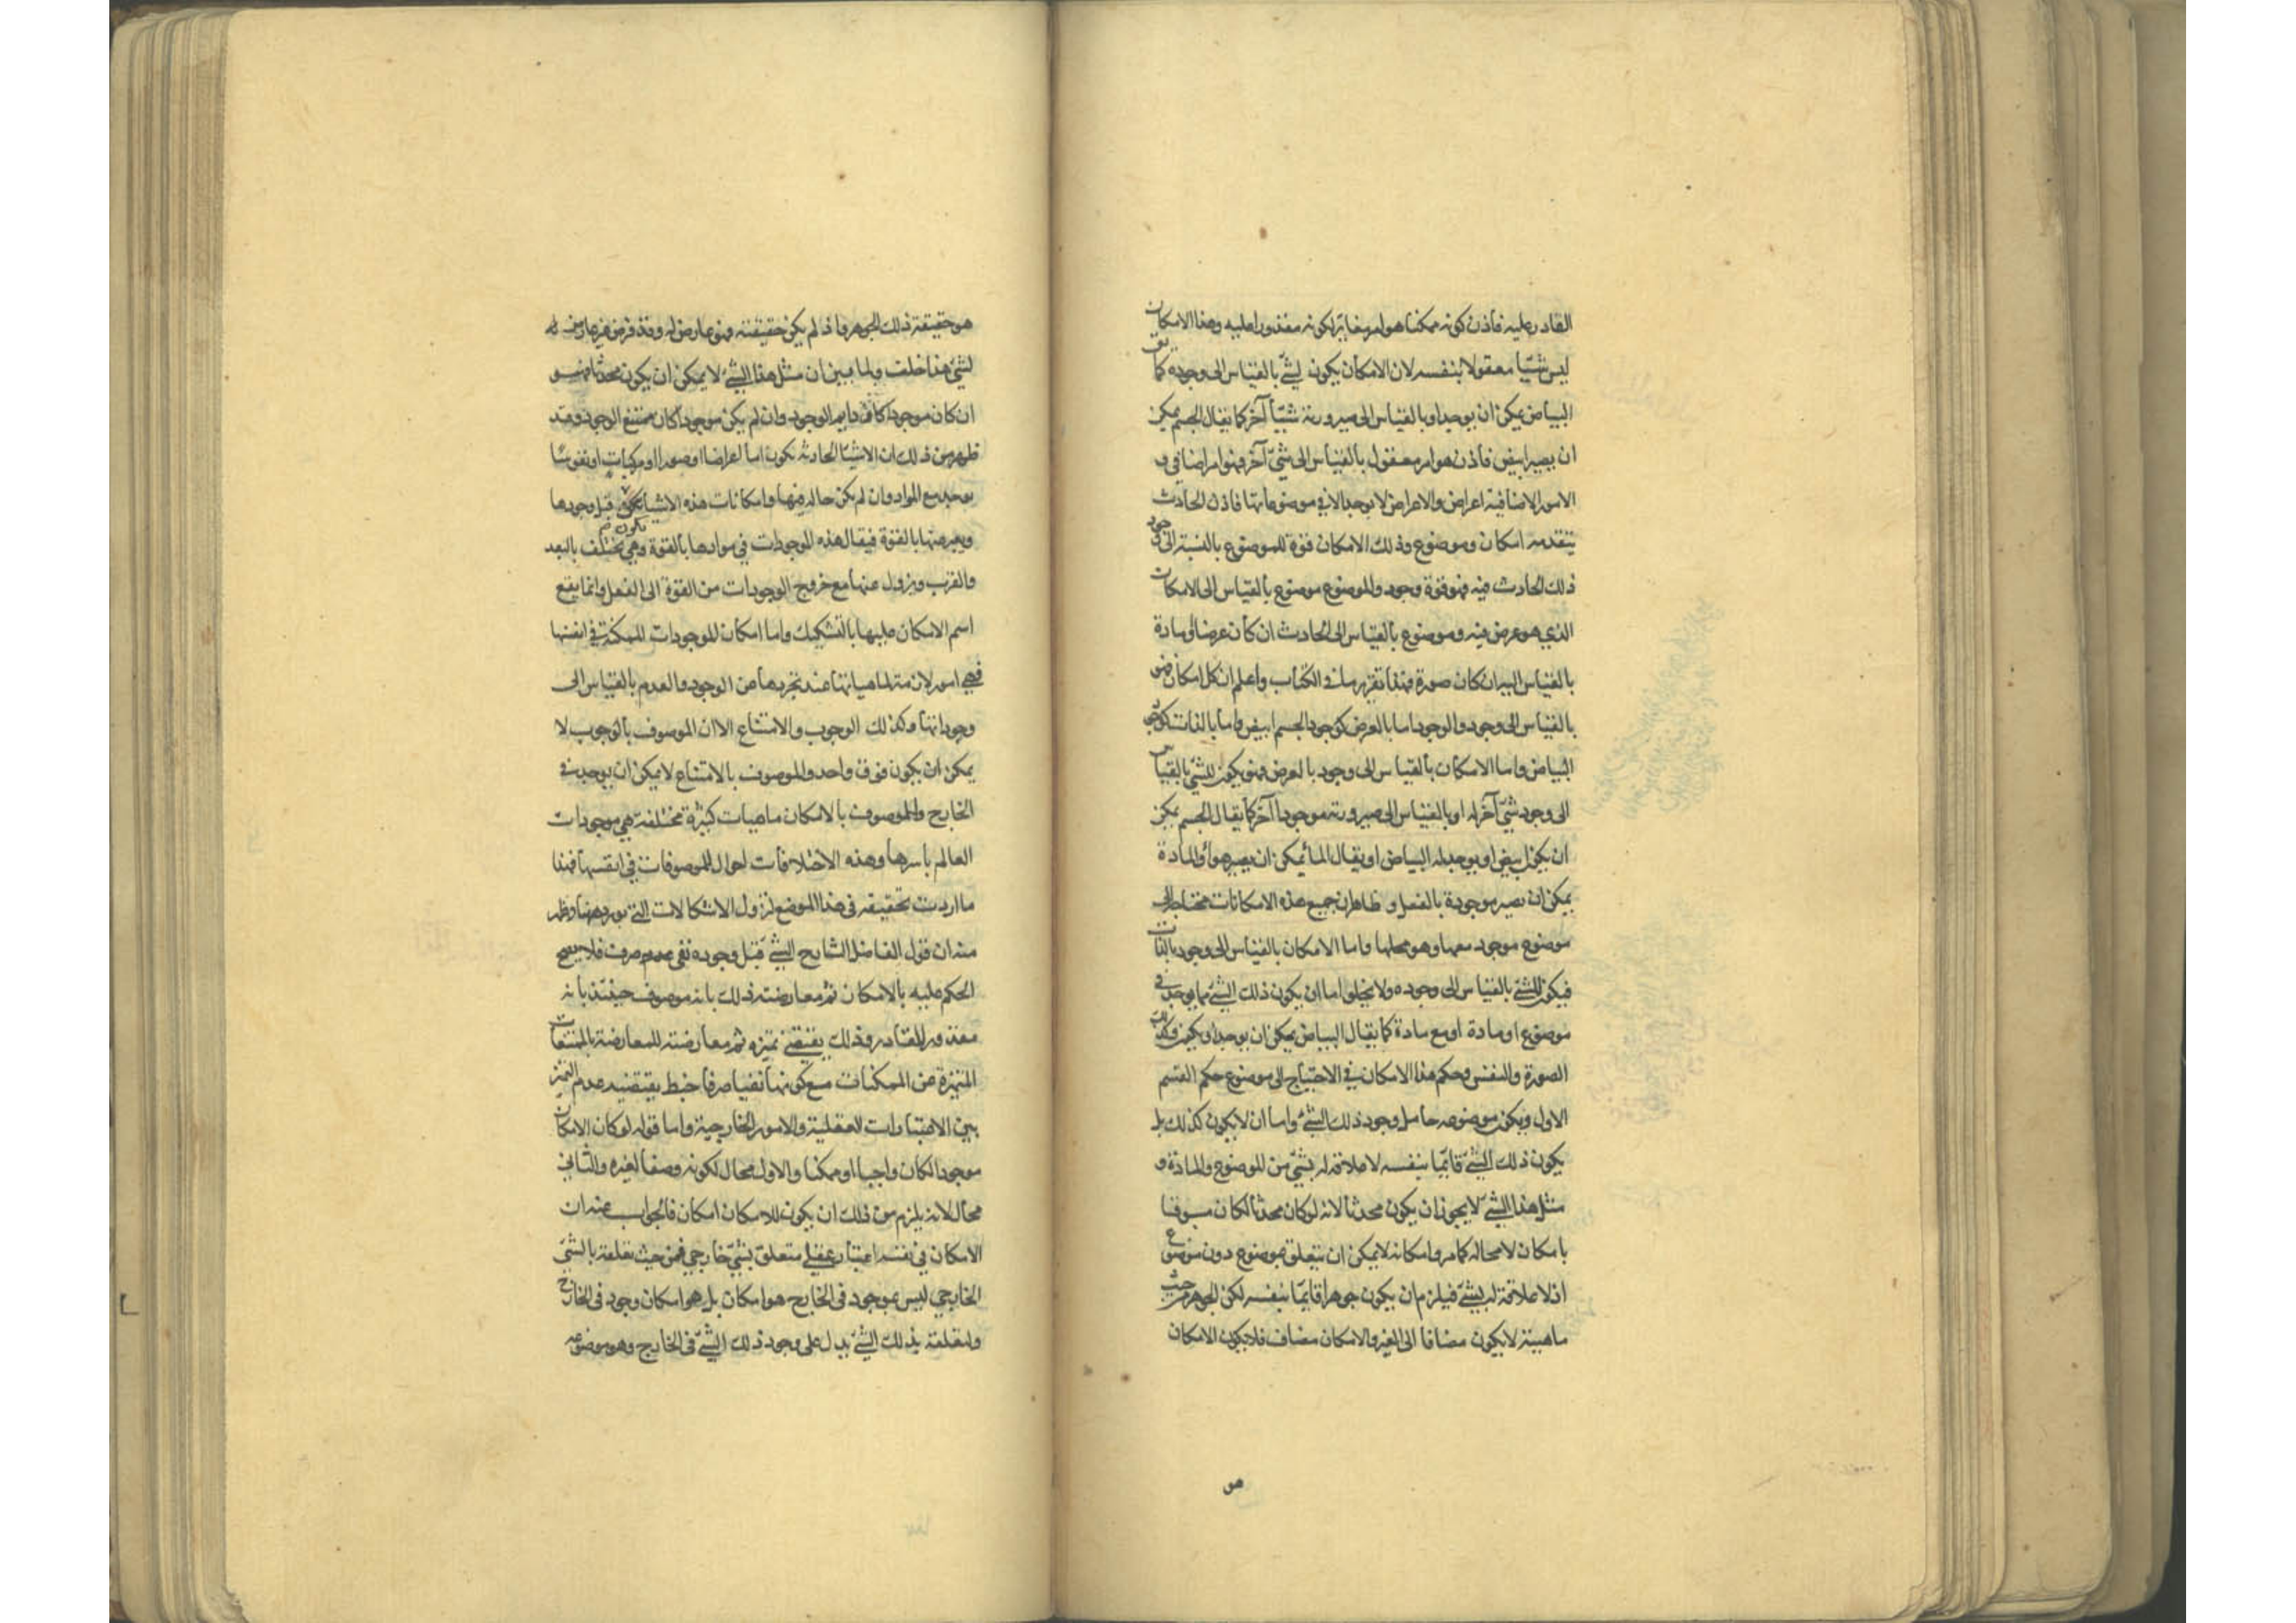 القادر عليه فاذن كونه ممكنا هو امر مغاير لكونه مقدورا عليه وهذا الامكان
ليس شيئا معقولا بنفسه لان الامكان يكون لشئ بالقياس الى وجوده كما يق
البياض يمكن ان يوجد او بالقياس الى صيرورته شيئا آخر كما يقال الجسم يمكن
ان يصير ابيض فاذن هو امر معقول بالقياس الى شئ آخر فهو امر اضافى و
الامور الاضافية اعراض والاعراض لا يوجد الا فى موضوعاتها فاذن الحادث
يتقدمه امكان وموضوع وذلك الامكان قوة للموضوع بالنسبة الى وجود
ذلك الحادث فيه فهو قوة وجود والموضوع موضوع بالقياس الى الامكان
الذي هو عرض فيه وموضوع بالقياس الى الحادث ان كان عرضا او مادة
بالقياس اليه ان كان صورة فهذا تقرير ما فى الكتاب واعلم ان كل امكان فهو
بالقياس الى وجود والوجود اما بالعرض كوجود الجسم ابيض واما بالذات كوجود
البياض واما الامكان بالقياس الى وجود بالعرض فهو يكون للشئ بالقياس
الى وجود شئ آخر له او بالقياس الى صيرورته موجودا آخر كما يقال الجسم يمكن
ان يكون ابيض او يوجد له البياض او يقال الماء يمكن ان يصير هواء والمادة
يمكن ان تصير موجودة بالفعل و ظاهر ان جميع هذه الامكانات محتاجة الى
موضوع موجود معها وهو محلها واما الامكان بالقياس الى وجود بالذات
فيكون للشئ بالقياس الى وجوده ولا يخلو اما ان يكون ذلك الشئ مما يوجد فى
موضوع او مادة او مع مادة كما يقال البياض يمكن ان يوجد او يكون وكذلك
الصورة والنفس وحكم هذا الامكان فى الاحتياج الى موضوع حكم القسم
الاول ويكون موضوعه حامل وجود ذلك الشئ واما ان لا يكون كذلك بل
يكون ذلك الشئ قائما بنفسه لا علاقة له بشئ من الموضوع والمادة و
مثل هذا الشئ لا يجوز ان يكون محدثا لانه لو كان محدثا لكان مسبوقا
بامكان لا محالة كما مر وامكانه لا يمكن ان يتعلق بموضوع دون موضوع
اذ لا علاقة له بشئ فيلزم ان يكون جوهرا قائما بنفسه لكن الجوهر من حيث
ماهيته لا يكون مضافا الى الغير والامكان مضاف فلا يكون الامكان
هو
هو حقيقة ذلك الجوهر واذ لم يكن حقيقته فهو عارض له وقد فرض غير عارض له
لشئ هذا خلف ولما تبين ان مثل هذا الشئ لا يمكن ان يكون محدثا فهو
ان كان موجودا كان دايم الوجود وان لم يكن موجودا كان ممتنع الوجود وقد
ظهر من ذلك ان الاشياء الحادثة تكون اما اعراضا او صورا او مركبات او نفوسا
يوجد مع المواد وان لم يكن حالة فيها وامكانات هذه الاشياء تكون قبل وجودها
ويعبر عنها بالقوة فيقال هذه الموجودات فى موادها بالقوة وهى تختلف بالبعد
والقرب ويزول عنها مع خروج الوجودات من القوة الى الفعل وانما يقع
اسم الامكان عليها بالتشكيك واما امكان الموجودات الممكنة فى انفسها
فهى امور لازمة لماهياتها عند تجريدها عن الوجود والعدم بالقياس الى
وجوداتها وكذلك الوجوب والامتناع الا ان الموصوف بالوجوب لا
يمكن ان يكون فوق واحد والموصوف بالامتناع لا يمكن ان يوجد فى
الخارج والموصوف بالامكان ماهيات كثيرة مختلفة هي موجودات
العالم باسرها وهذه الاختلافات احوال للموصوفات فى انفسها فهذا
ما اردت تحقيقه فى هذا الموضع لتزول الاشكالات التى تورد ههنا وظهر
منه ان قول الفاضل الشارح الشئ قبل وجوده نفى عدم صرف فلا يصح
الحكم عليه بالامكان ثم معارضته ذلك بانه موصوف حينئذ بانه
مقدور للقادر وذلك يقتضى تميزه ثم معارضته للمعارضة بالممتنعات
المتميزة عن الممكنات مع كونها نفيا صرفا خبط يقتضيه عدم التميز
بين الاعتبارات العقلية والامور الخارجية واما قوله لو كان الامكان
موجودا لكان واجبا او ممكنا والاول محال لكونه وصفا لغيره والثانى
محال لانه يلزم من ذلك ان يكون للامكان امكان فالجواب عنه ان
الامكان فى نفسه اعتبار عقلى متعلق بشئ خارجى فمن حيث تعلقه بالشئ
الخارجى ليس بموجود فى الخارج هو امكان بل هو امكان وجود فى الخارج
ولتعلقه بذلك الشئ يدل على وجود ذلك الشئ فى الخارج وهو موضوعه